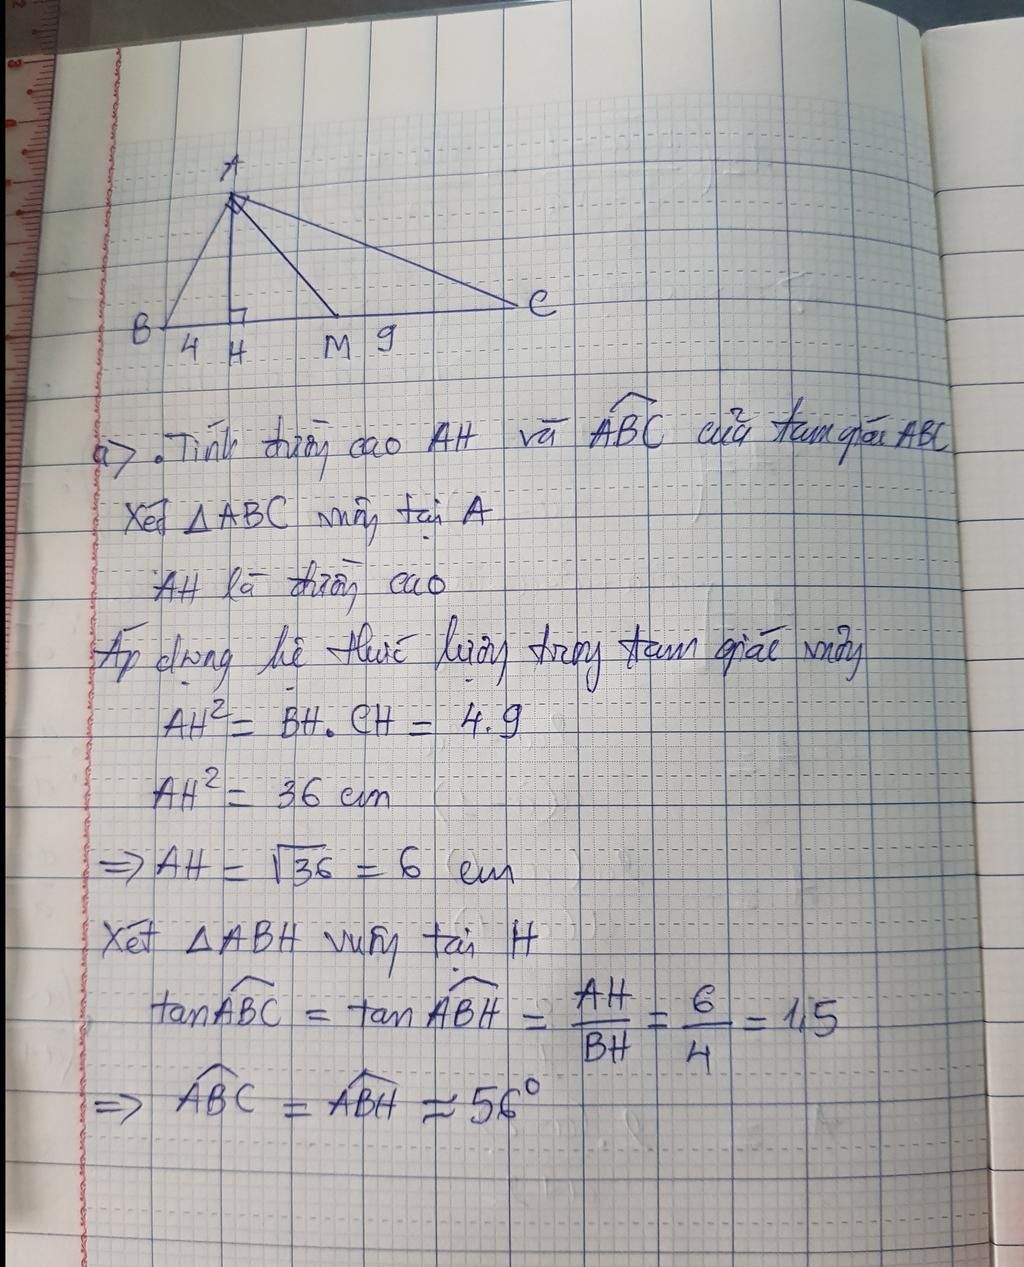 A
B 4 H M 9 C
a> . Tính đường cao AH và ABC của tam giác ABC
Xét △ABC vuông tại A
AH là đường cao
Áp dụng hệ thức lượng trong tam giác vuông
AH² = BH. CH = 4.9
AH² = 36 cm
=> AH = √36 = 6 cm
Xét △ABH vuông tại H
tan ABC = tan ABH = AH/BH = 6/4 = 1,5
=> ABC = ABH ≈ 56°